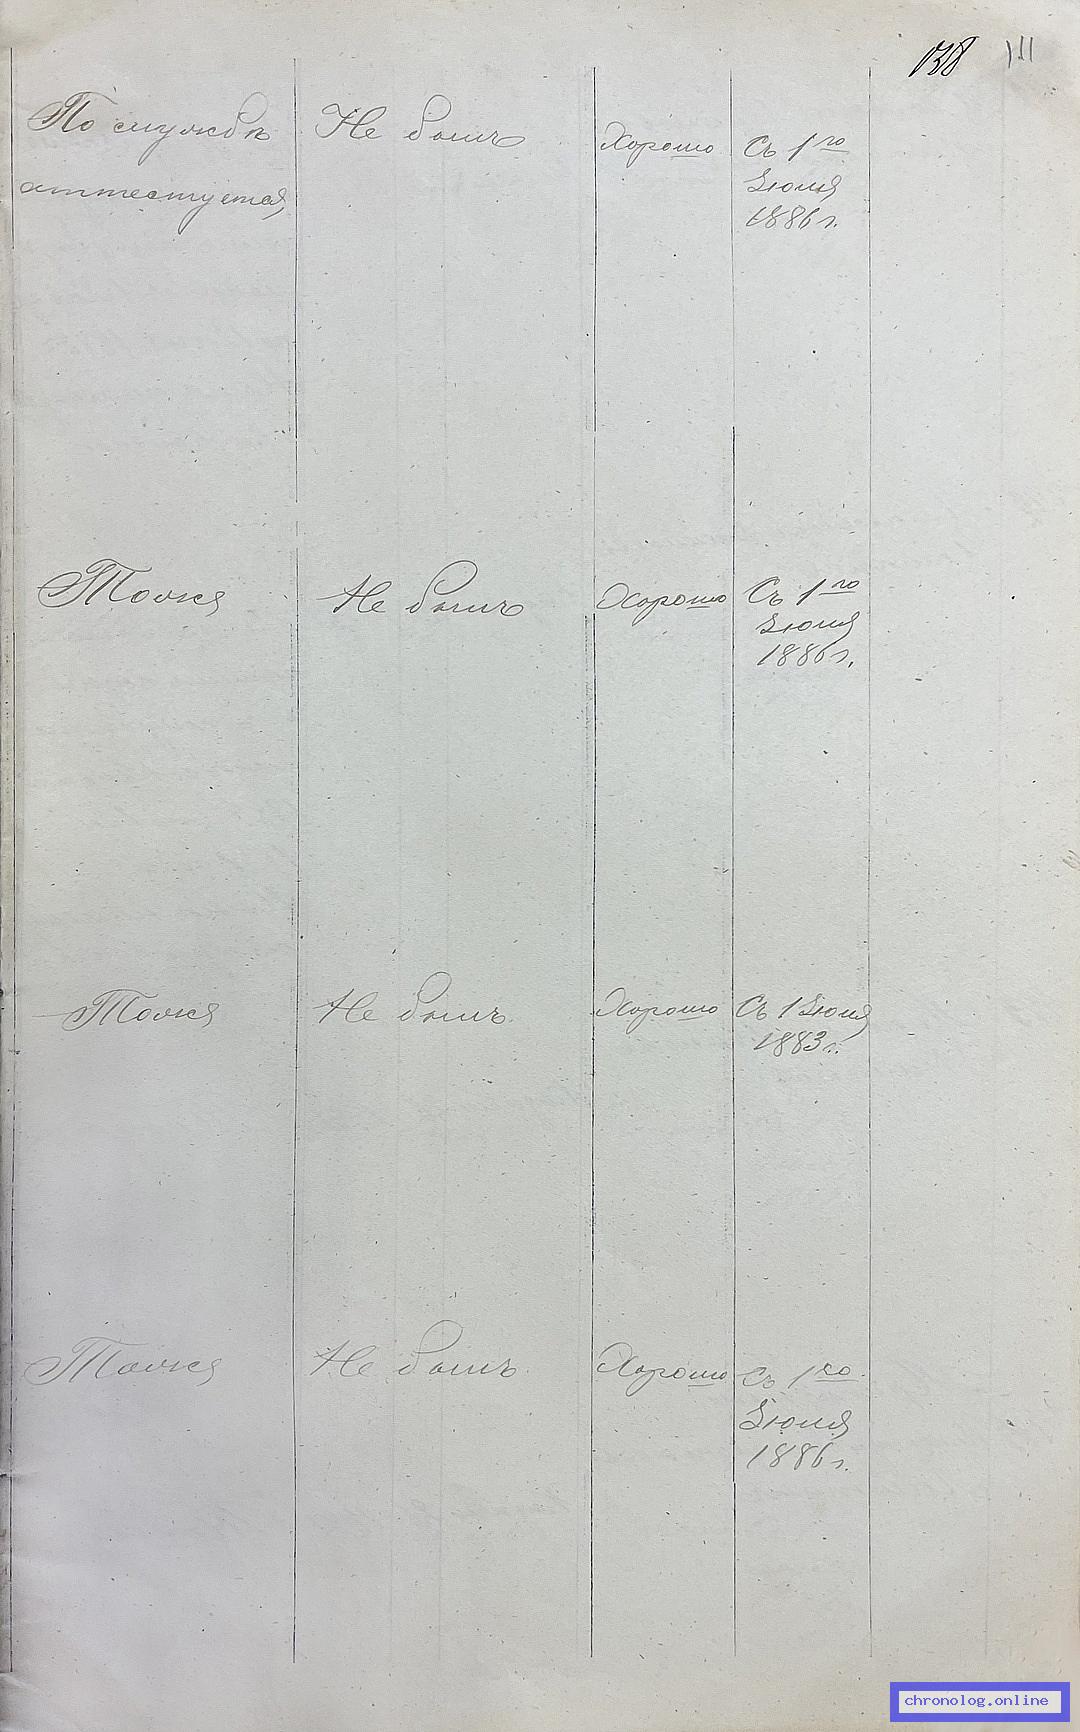 138 111
По службѣ Не былъ Хорошо Съ 1го
аттестуется Іюля
1886 г.
Тоже Не былъ Хорошо Съ 1го
Іюля
1886 г.
Тоже Не былъ Хорошо Съ 1 Іюня
1883 г.
Тоже Не былъ Хорошо Съ 1го
Іюля
1886 г.
chronolog.online